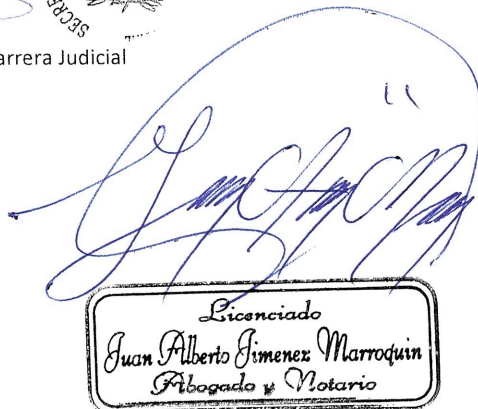 SECRE
arrera Judicial
Licenciado
Juan Alberto Jimenez Marroquin
Abogado y Notario